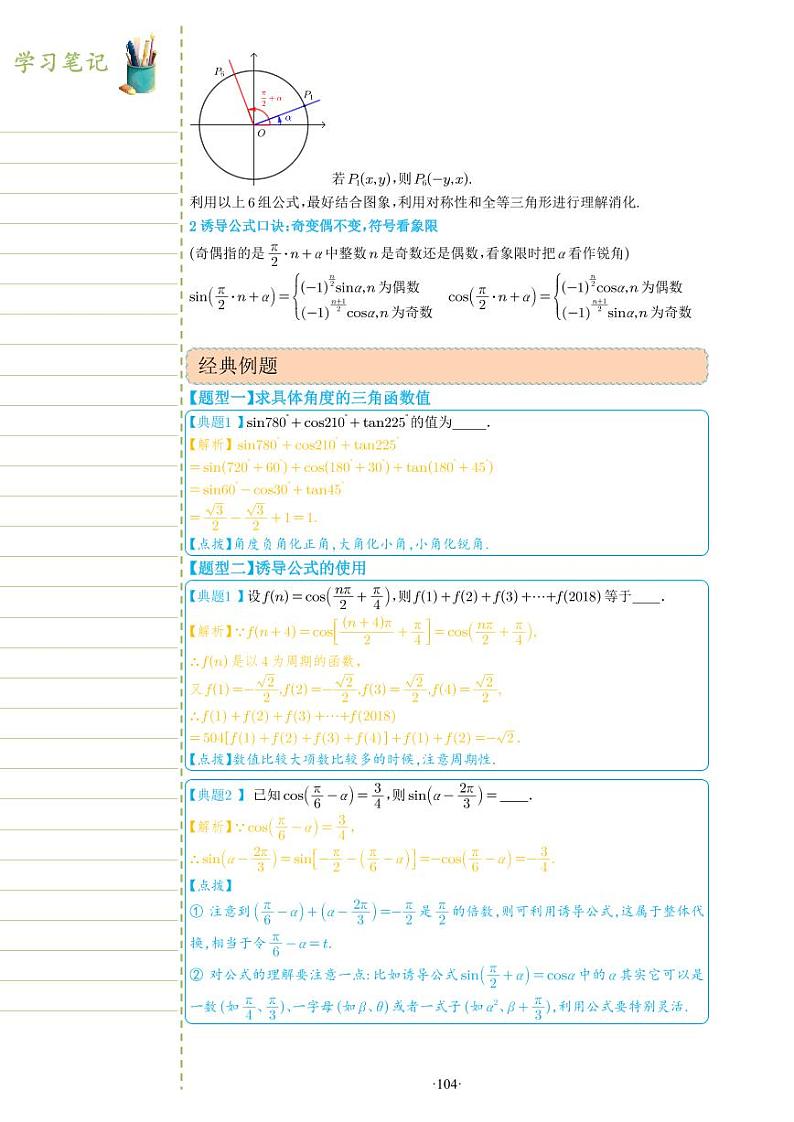 学习笔记
P₆
π/2+α
P₁
α
O
若P₁(x,y),则P₆(-y,x).
利用以上6组公式,最好结合图象,利用对称性和全等三角形进行理解消化.
2 诱导公式口诀:奇变偶不变,符号看象限
(奇偶指的是 π/2·n+α中整数n是奇数还是偶数,看象限时把α看作锐角)
sin(π/2·n+α)={(-1)^(n/2) sinα,n为偶数 cos(π/2·n+α)={(-1)^(n/2) cosα,n为偶数
(-1)^((n+1)/2) cosα,n为奇数 (-1)^((n+1)/2) sinα,n为奇数
经典例题
【题型一】求具体角度的三角函数值
【典题1 】sin780°+cos210°+tan225°的值为____.
【解析】sin780°+cos210°+tan225°
=sin(720°+60°)+cos(180°+30°)+tan(180°+45°)
=sin60°-cos30°+tan45°
=√3/2-√3/2+1=1.
【点拨】角度负角化正角,大角化小角,小角化锐角.
【题型二】诱导公式的使用
【典题1 】设f(n)=cos(nπ/2+π/4),则f(1)+f(2)+f(3)+⋯+f(2018)等于____.
【解析】∵f(n+4)=cos[(n+4)π/2+π/4]=cos(nπ/2+π/4),
∴f(n)是以4为周期的函数,
又f(1)=-√2/2,f(2)=-√2/2,f(3)=√2/2,f(4)=√2/2,
∴f(1)+f(2)+f(3)+⋯+f(2018)
=504[f(1)+f(2)+f(3)+f(4)]+f(1)+f(2)=-√2.
【点拨】数值比较大项数比较多的时候,注意周期性.
【典题2 】 已知cos(π/6-α)=3/4,则sin(α-2π/3)=____.
【解析】∵cos(π/6-α)=3/4,
∴sin(α-2π/3)=sin[-π/2-(π/6-α)]=-cos(π/6-α)=-3/4.
【点拨】
① 注意到(π/6-α)+(α-2π/3)=-π/2是π/2的倍数,则可利用诱导公式,这属于整体代
换,相当于令π/6-α=t.
② 对公式的理解要注意一点:比如诱导公式sin(π/2+α)=cosα中的α其实它可以是
一数(如π/4、π/3)、一字母(如β、θ)或者一式子(如α²、β+π/3),利用公式要特别灵活.
·104·